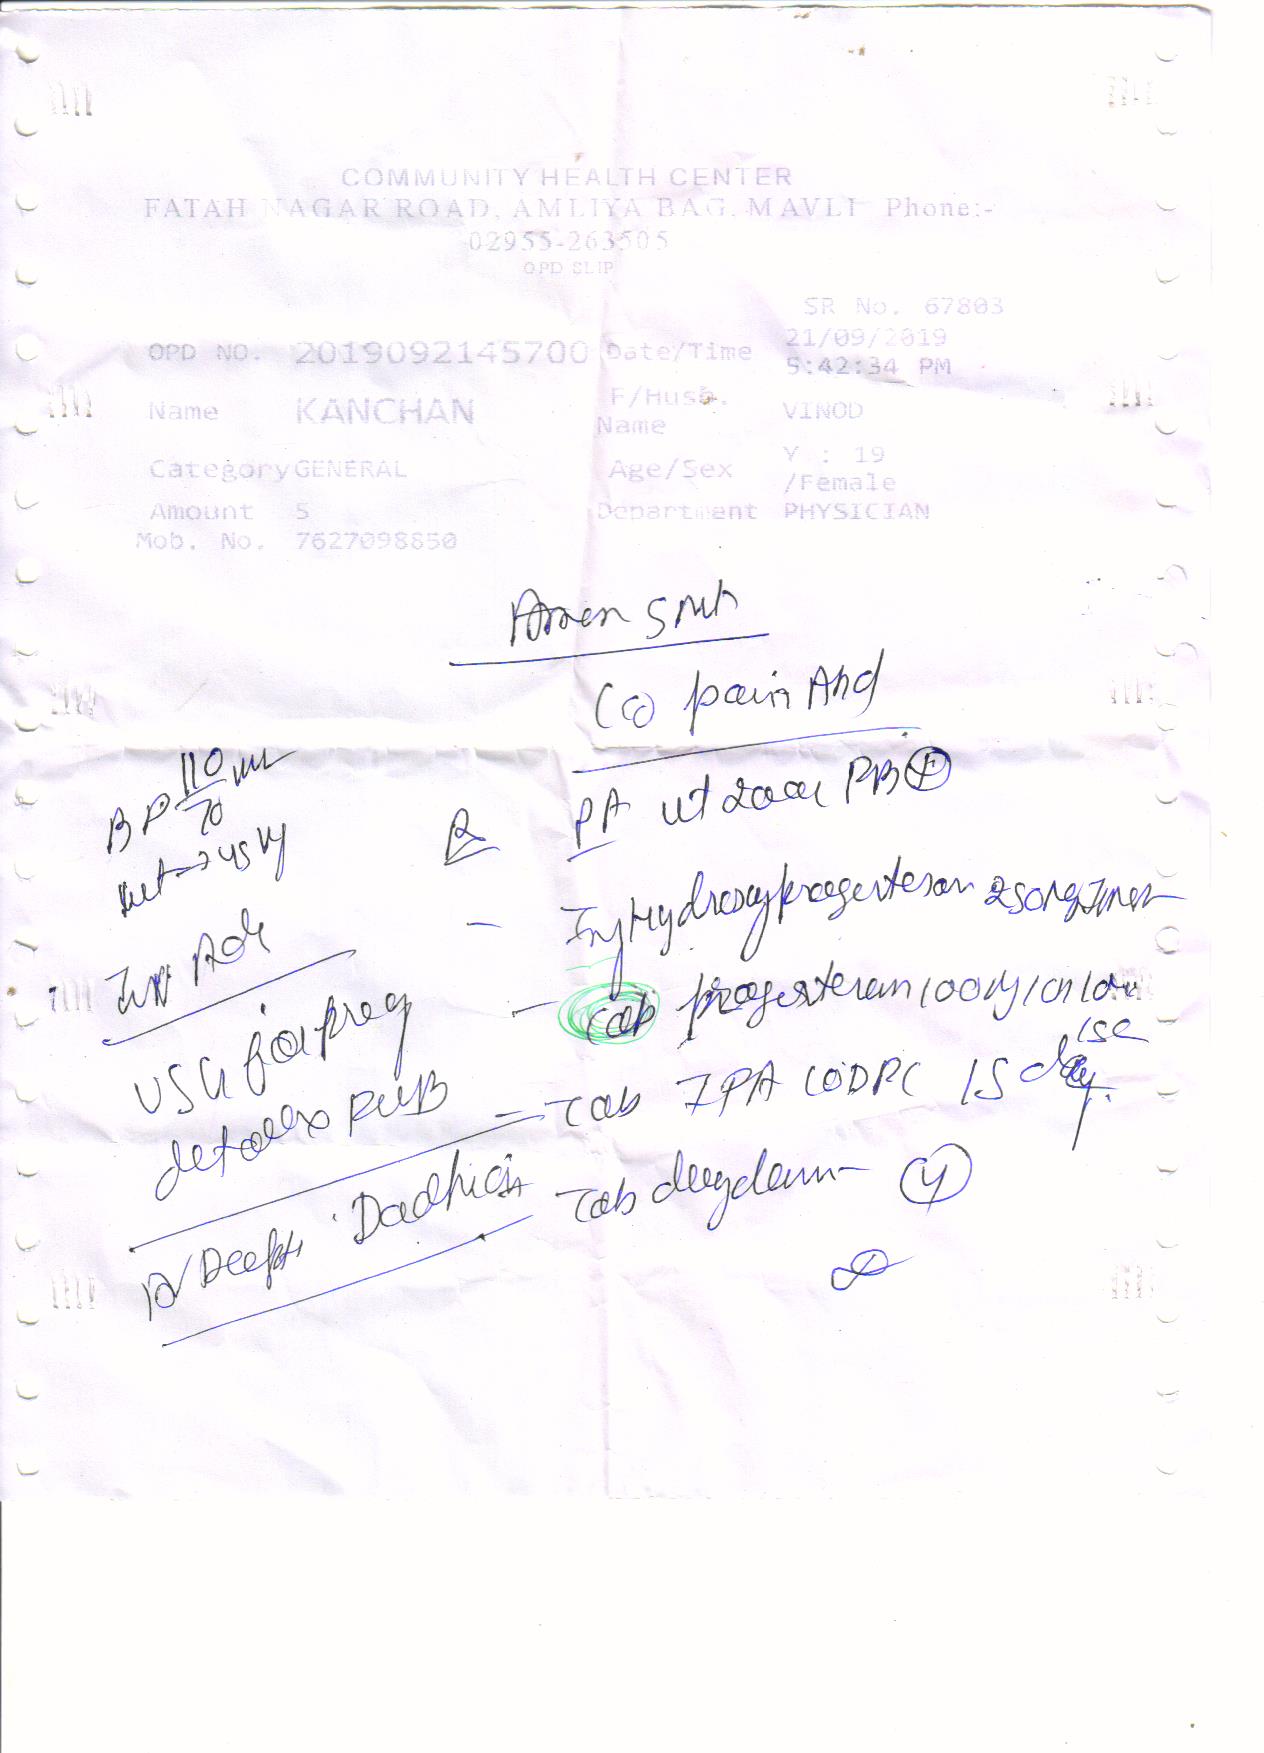 COMMUNITY HEALTH CENTER
FATAH NAGAR ROAD, AMLIYA BAG, MAVLI Phone:-
02955-263505
OPD SLIP
SR No. 67803
OPD NO. 2019092145700 Date/Time 21/09/2019
5:42:34 PM
Name KANCHAN F/Husb. Name VINOD
Category GENERAL Age/Sex Y : 19 /Female
Amount 5 Department PHYSICIAN
Mob. No. 7627098850
Amen 5
C/o pain Abd
BP 110/70
PA ut
45 kg
Inj Hydroxyprogesteron 250mg
Adv
Tab progesteron 100
USG for preg
Tab IFA 1 OD PC 15 day
Tab
Dr Deepti Dadhich